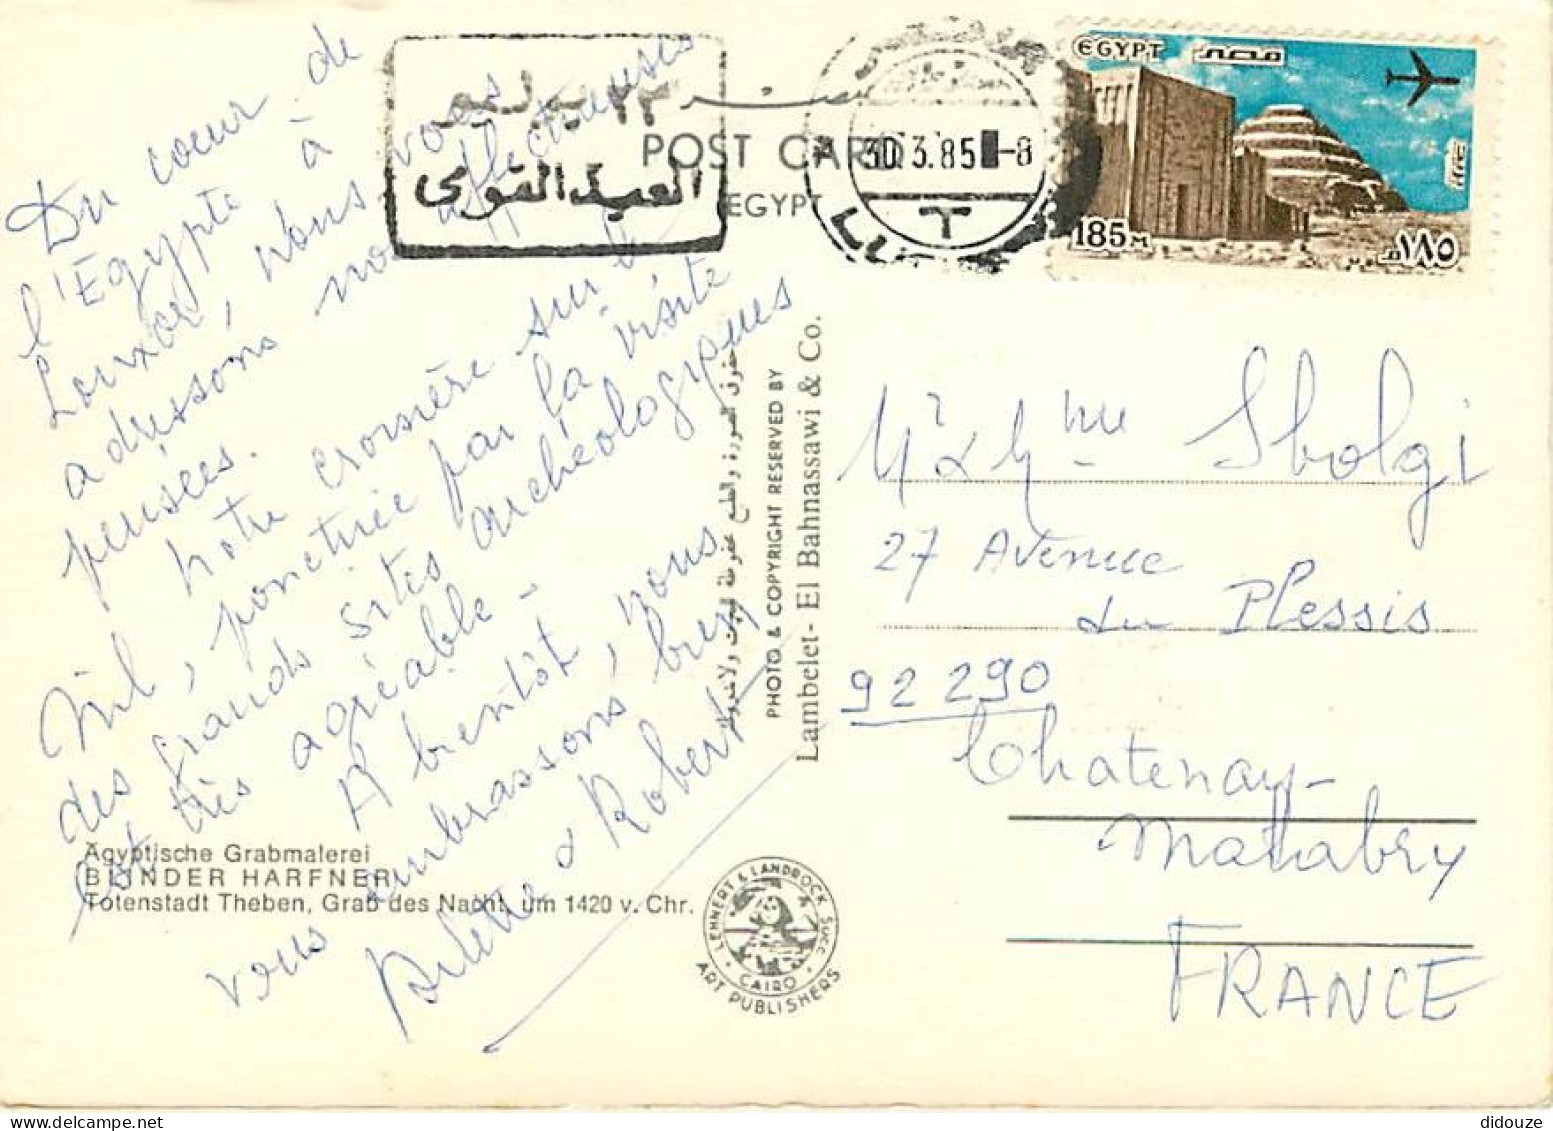 Du coeur de
l'Égypte à
Louxor, nous vous
adressons nos affectueuses
pensées.
Notre croisière sur le
Nil, ponctuée par la visite
des grands sites archéologiques
est très agréable -
A bientôt, nous
vous embrassons bien
& Robert
٢٣ يوليو
العيد القومى
POST CARD
EGYPT
30.3.85 -8
T
EGYPT مصر
185 M
١٨٥ م
حقوق الصورة والطبع محفوظة
PHOTO & COPYRIGHT RESERVED BY
Lambelet - El Bahnassawi & Co.
Mr & Mme Sbolgi
27 Avenue
du Plessis
92 290
Chatenay-
Malabry
FRANCE
Ägyptische Grabmalerei
BLINDER HARFNER
Totenstadt Theben, Grab des Nacht, um 1420 v. Chr.
LEHNERT & LANDROCK Succ.
CAIRO
ART PUBLISHERS
didouze